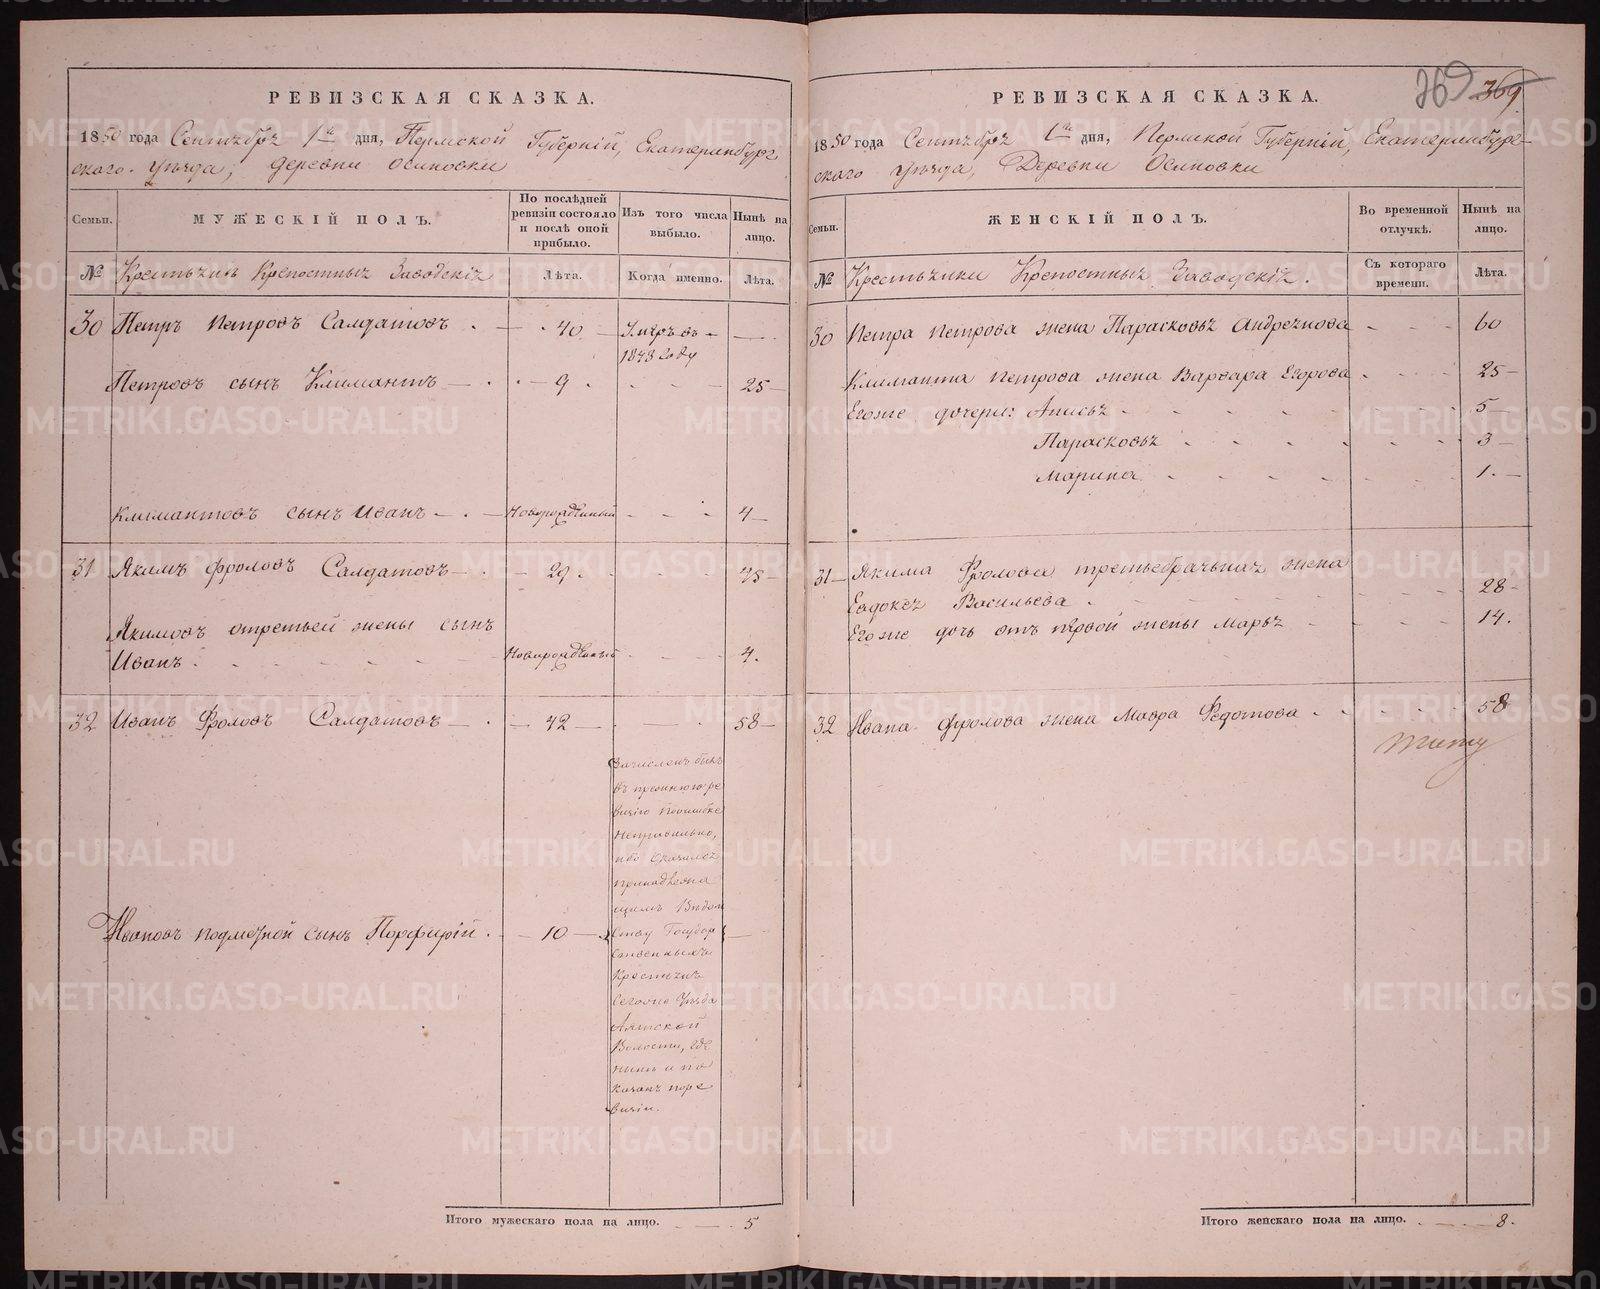 РЕВИЗСКАЯ СКАЗКА.
1850 года Сентября 1го дня, Пермской Губернiй, Екатеринбург
скаго. Уѣзда, деревни Осиновки
Семьи.
МУЖЕСКIЙ ПОЛЪ.
По послѣдней ревизiи состояло и послѣ оной прибыло.
Изъ того числа выбыло.
Нынѣ на лицо.
№
Крестьянъ Крѣпостныхъ Заводскихъ
Лѣта.
Когда именно.
Лѣта.
30 Петръ Петровъ Салдатовъ 40 Умеръ въ
1843 году
Петровъ сынъ Климантъ 9 25
Климантовъ сынъ Иванъ Новорожденный 4
31 Якимъ Фроловъ Салдатовъ 29 45
Якимовъ отретьей жены сынъ
Иванъ Новорожденный 4.
32 Иванъ Фроловъ Салдатовъ 42 58
Зачисленъ былъ
въ прежнюю ре
визiю поошибке
неправильно,
ибо оказался
принадлежа
щимъ Вѣдом
Ивановъ подмѣзной сынъ Порфирiй 10 ству Государ
ственныхъ
Крестьянъ
сегоже Уѣзда
Аятской
Волости, где
нынѣ и по
казанъ поре
визiи.
Итого мужескаго пола на лицо. 5
369 369
РЕВИЗСКАЯ СКАЗКА.
1850 года Сентября 1го дня, Пермской Губернiй, Екатеринбург
скаго Уѣзда, Деревни Осиновки
Семьи.
ЖЕНСКIЙ ПОЛЪ.
Во временной отлучкѣ.
Нынѣ на лицо.
№
Крестьянки Крѣпостныхъ Заводскихъ.
Съ котораго времени.
Лѣта.
30 Петра Петрова жена Парасковья Андреянова 60
Климанта Петрова жена Варвара Егорова 25
Егоже дочери: Анисья 5
Парасковья 3
Марина 1.
31 Якима Фролова третьебрачьная жена
Евдокея Васильева 28
Егоже дочь отъ первой жены Марья 14.
32 Ивана Фролова жена Мавра Федотова 58
Итого женскаго пола на лицо. 8.
METRIKI.GASO-URAL.RU